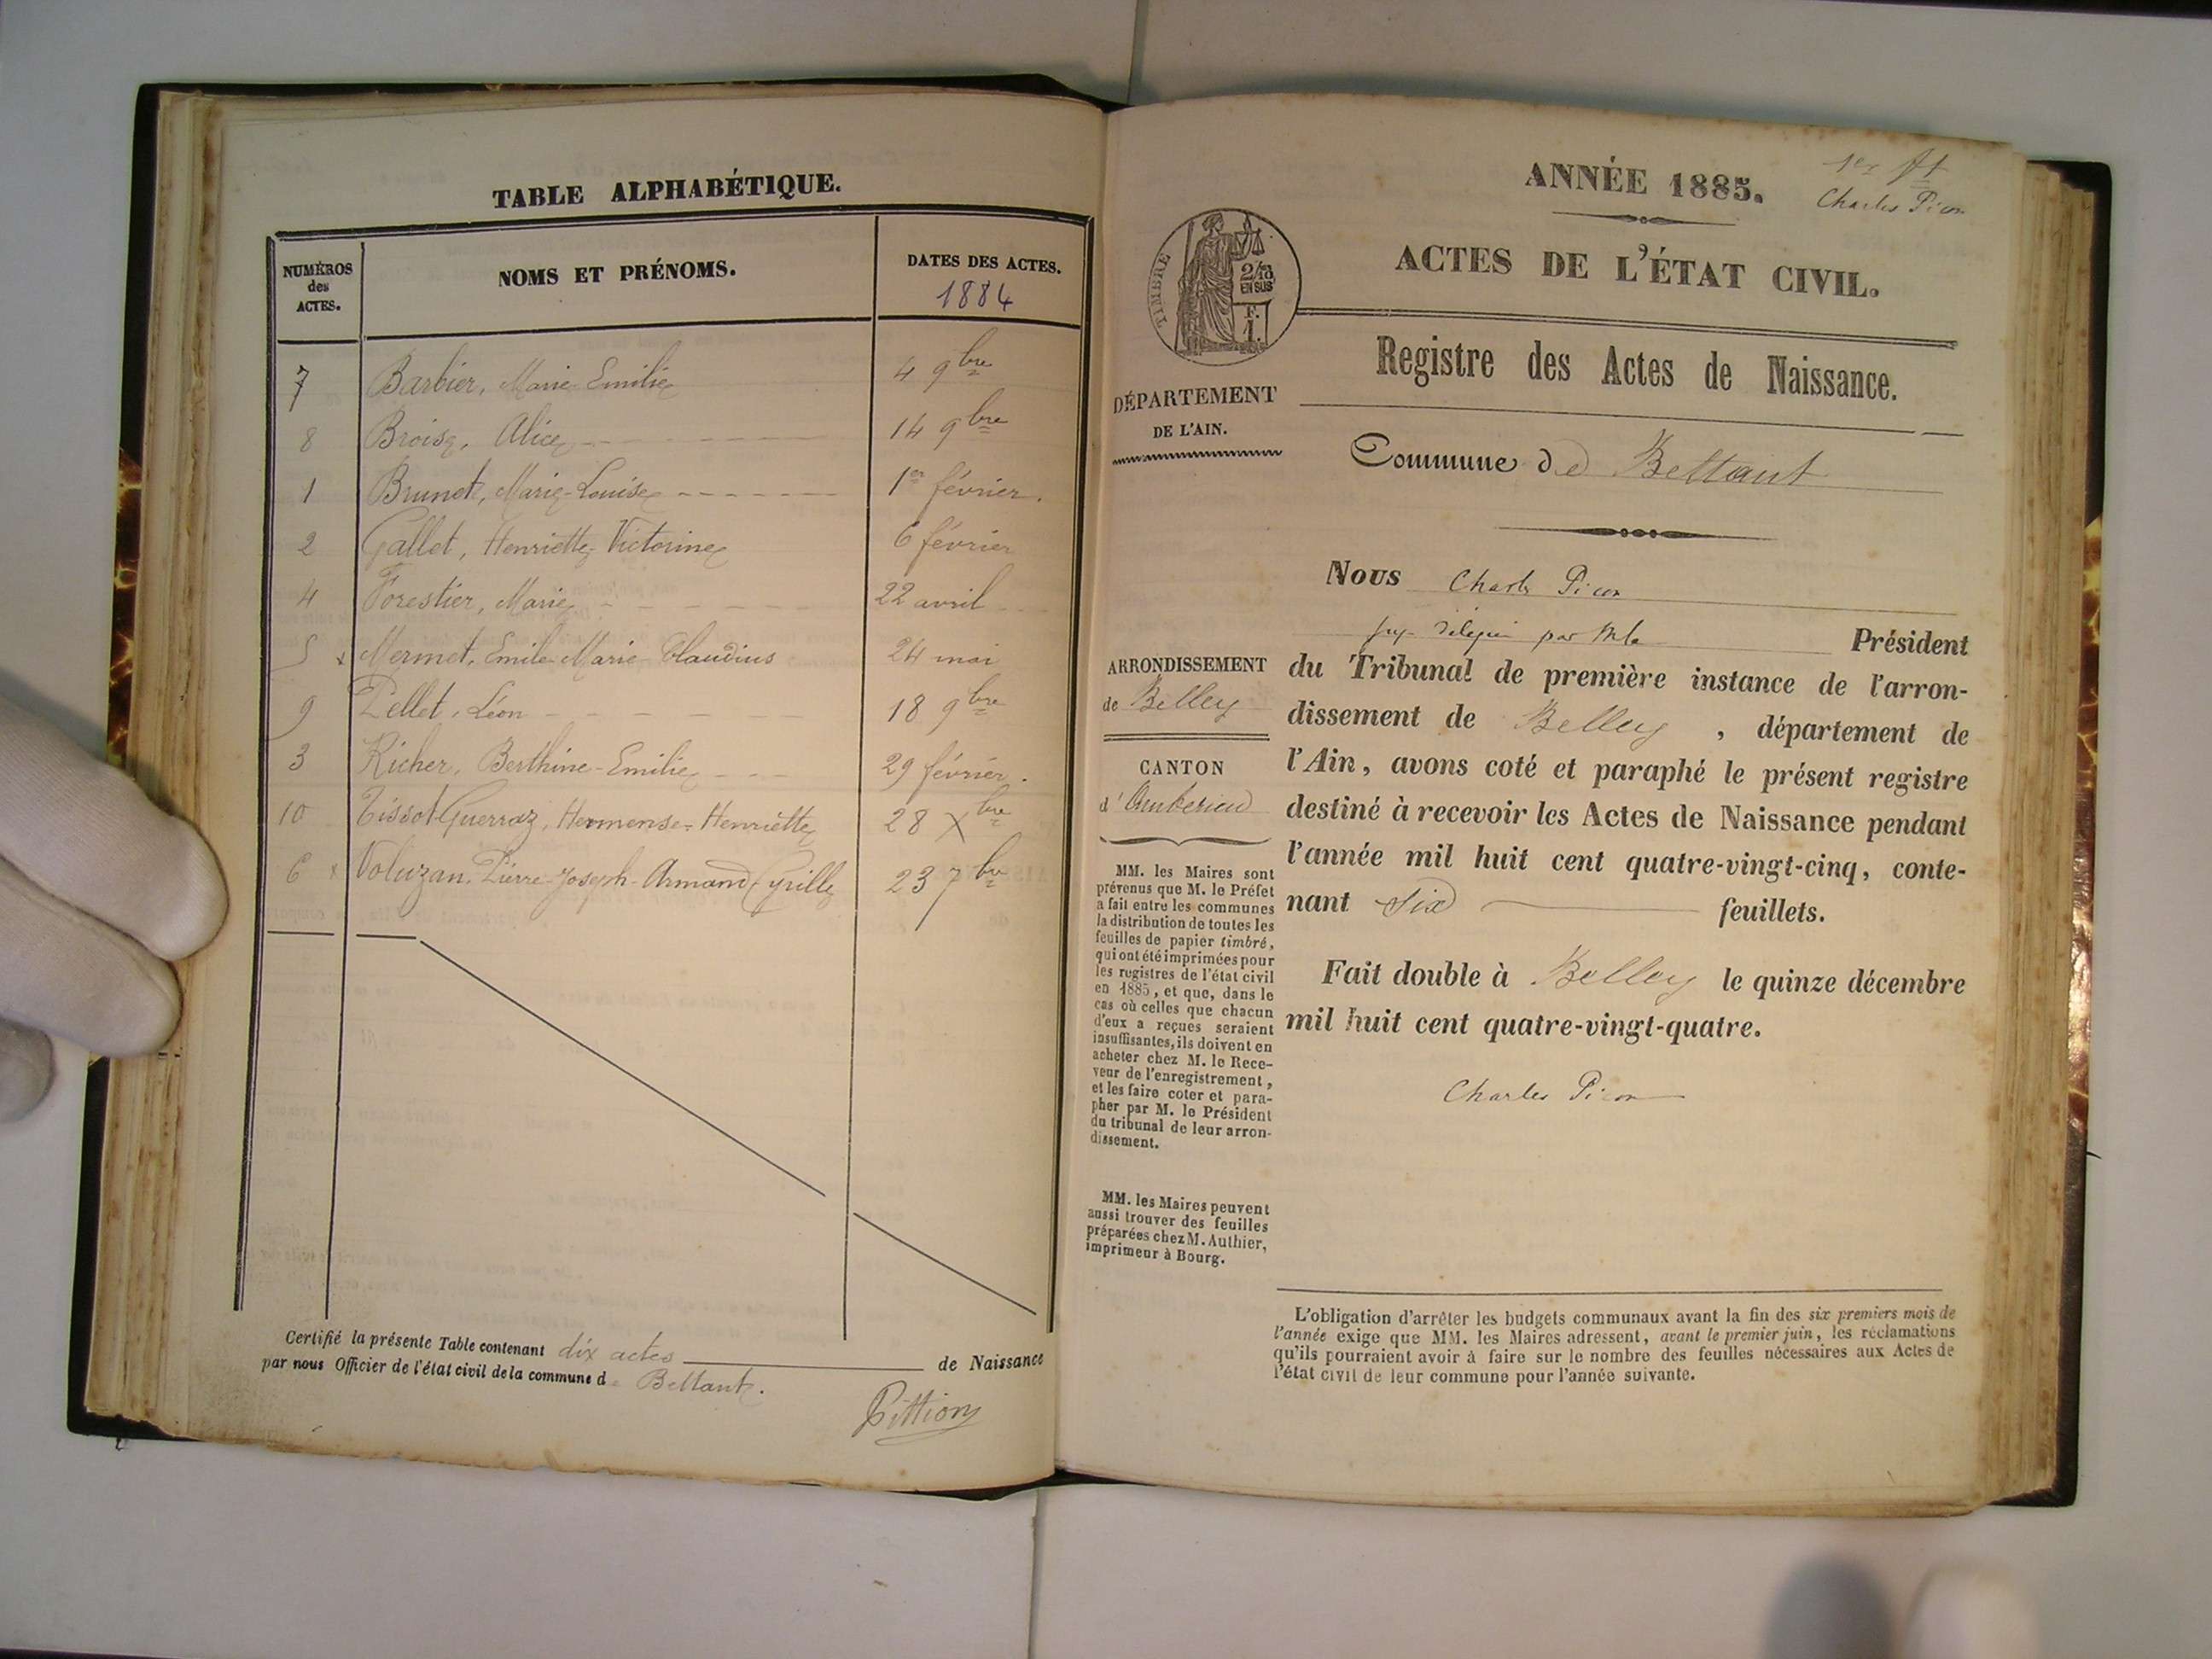 TABLE ALPHABÉTIQUE.
NUMÉROS des ACTES. NOMS ET PRÉNOMS. DATES DES ACTES.
1884
7 Barbier, Marie Emilie 4 9bre
8 Broise, Alice 14 9bre
1 Brunet, Marie-Louise 1er février.
2 Gallet, Henriette-Victorine 6 février
4 Forestier, Marie 22 avril
5 x Mermet, Emile Marie Claudius 24 mai
9 Pellet, Léon 18 9bre
3 Richer, Berthine-Emilie 29 février.
10 Tissot-Guerraz, Hermense-Henriette 28 Xbre
6 x Voluzan, Pierre-Joseph-Armand Cyrille 23 7bre
Certifié la présente Table contenant dix actes de Naissance
par nous Officier de l'état civil de la commune de Bettant.
Pittion
1er ft
Charles Picon
ANNÉE 1885.
ACTES DE L'ÉTAT CIVIL.
TIMBRE
2/10
EN SUS
F.
1.
Registre des Actes de Naissance.
DÉPARTEMENT
DE L'AIN.
Commune de Bettant
Nous Charles Picon
juge délégué par Mr le Président
du Tribunal de première instance de l'arron-
dissement de Belley, département de
l'Ain, avons coté et paraphé le présent registre
destiné à recevoir les Actes de Naissance pendant
l'année mil huit cent quatre-vingt-cinq, conte-
nant six feuillets.
Fait double à Belley le quinze décembre
mil huit cent quatre-vingt-quatre.
Charles Picon
ARRONDISSEMENT
de Belley
CANTON
d'Amberieu
MM. les Maires sont
prévenus que M. le Préfet
a fait entre les communes
la distribution de toutes les
feuilles de papier timbré,
qui ont été imprimées pour
les registres de l'état civil
en 1885, et que, dans le
cas où celles que chacun
d'eux a reçues seraient
insuffisantes, ils doivent en
acheter chez M. le Rece-
veur de l'enregistrement,
et les faire coter et para-
pher par M. le Président
du tribunal de leur arron-
dissement.
MM. les Maires peuvent
aussi trouver des feuilles
préparées chez M. Authier,
imprimeur à Bourg.
L'obligation d'arrêter les budgets communaux avant la fin des six premiers mois de
l'année exige que MM. les Maires adressent, avant le premier juin, les réclamations
qu'ils pourraient avoir à faire sur le nombre des feuilles nécessaires aux Actes de
l'état civil de leur commune pour l'année suivante.